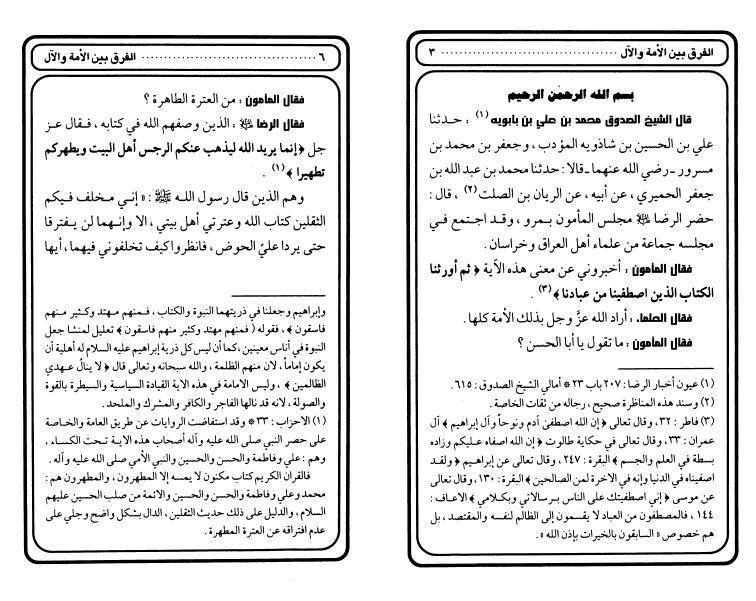 الفرق بين الأمة والآل ........................................ ٣
بسم الله الرحمن الرحيم
قال الشيخ الصدوق محمد بن علي بن بابويه (١) : حدثنا
علي بن الحسين بن شاذويه المؤدب ، وجعفر بن محمد بن
مسرور ـ رضي الله عنهما ـ قالا : حدثنا محمد بن عبد الله بن
جعفر الحميري ، عن أبيه ، عن الريان بن الصلت (٢) ، قال :
حضر الرضا ﷺ مجلس المأمون بمرو ، وقد اجتمع في
مجلسه جماعة من علماء أهل العراق وخراسان .
فقال المأمون : أخبروني عن معنى هذه الآية ﴿ ثم أورثنا
الكتاب الذين اصطفينا من عبادنا ﴾ (٣) .
فقال العلماء. أراد الله عزَّ وجل بذلك الأمة كلها .
فقال المأمون : ما تقول يا أبا الحسن ؟
(١) عيون أخبار الرضا : ٢٠٧ باب ٢٣ * أمالي الشيخ الصدوق : ٦١٥ .
(٢) وسند هذه المناظرة صحيح ، رجاله من ثقات الخاصة .
(٣) فاطر : ٣٢ ، وقال تعالى ﴿ إن الله اصطفى آدم ونوحاً وآل إبراهيم ﴾ آل
عمران : ٣٣ ، وقال تعالى في حكاية طالوت ﴿ إن الله اصفاه عليكم وزاده
بسطة في العلم والجسم ﴾ البقرة : ٢٤٧ ، وقال تعالى عن إبراهيم ﴿ ولقد
اصفيناه في الدنيا وإنه في الاخرة لمن الصالحين ﴾ البقرة : ١٣٠ ، وقال تعالى
عن موسى ﴿ إني اصطفيتك على الناس برسالاتي وبكلامي ﴾ الاعاف :
١٤٤ ، فالمصطفون من العباد لا يقسمون إلى الظالم لنفسه والمقتصد ، بل
هم خصوص « السابقون بالخيرات بإذن الله » .
٦ ........................................ الفرق بين الأمة والآل
فقال المأمون : من العترة الطاهرة ؟
فقال الرضا ﷺ : الذين وصفهم الله في كتابه ، فقال عز
جل ﴿ إنما يريد الله ليذهب عنكم الرجس أهل البيت ويطهركم
تطهيرا ﴾ (١) .
وهم الذين قال رسول الله ﷺ : « إني مخلف فيكم
الثقلين كتاب الله وعترتي أهل بيتي ، الا وإنهما لن يفترقا
حتى يردا عليّ الحوض ، فانظروا كيف تخلفوني فيهما ، أيها
وإبراهيم وجعلنا في ذريتهما النبوة والكتاب ، فمنهم مهتد وكثير منهم
فاسقون ﴾ ، فقوله ﴿ فمنهم مهتد وكثير منهم فاسقون ﴾ تعليل لمنشا جعل
النبوة في أناس معينين ، كما أن ليس كل ذرية إبراهيم عليه السلام له أهلية أن
يكون إماماً ، لان منهم الظلمة ، والله سبحانه وتعالى قال ﴿ لا ينال عهدي
الظالمين ﴾ ، وليس الامامة في هذه الاية القيادة السياسية والسيطرة بالقوة
والصولة ، لانه قد نالها الفاجر والكافر والمشرك والملحد .
(١) الاحزاب : ٣٣ * وقد استفاضت الروايات عن طريق العامة والخاصة
على حصر النبي صلى الله عليه وآله أصحاب هذه الاية تحت الكساء ،
وهم : علي وفاطمة والحسن والحسين والنبي الأمي صلى الله عليه وآله .
فالقران الكريم كتاب مكنون لا يمسه إلا المطهرون ، والمطهرون هم :
محمد وعلي وفاطمة والحسن والحسين والائمة من صلب الحسين عليهم
السلام ، والدليل على ذلك حديث الثقلين ، الدال بشكل واضح وجلي على
عدم افتراقه عن العترة المطهرة .